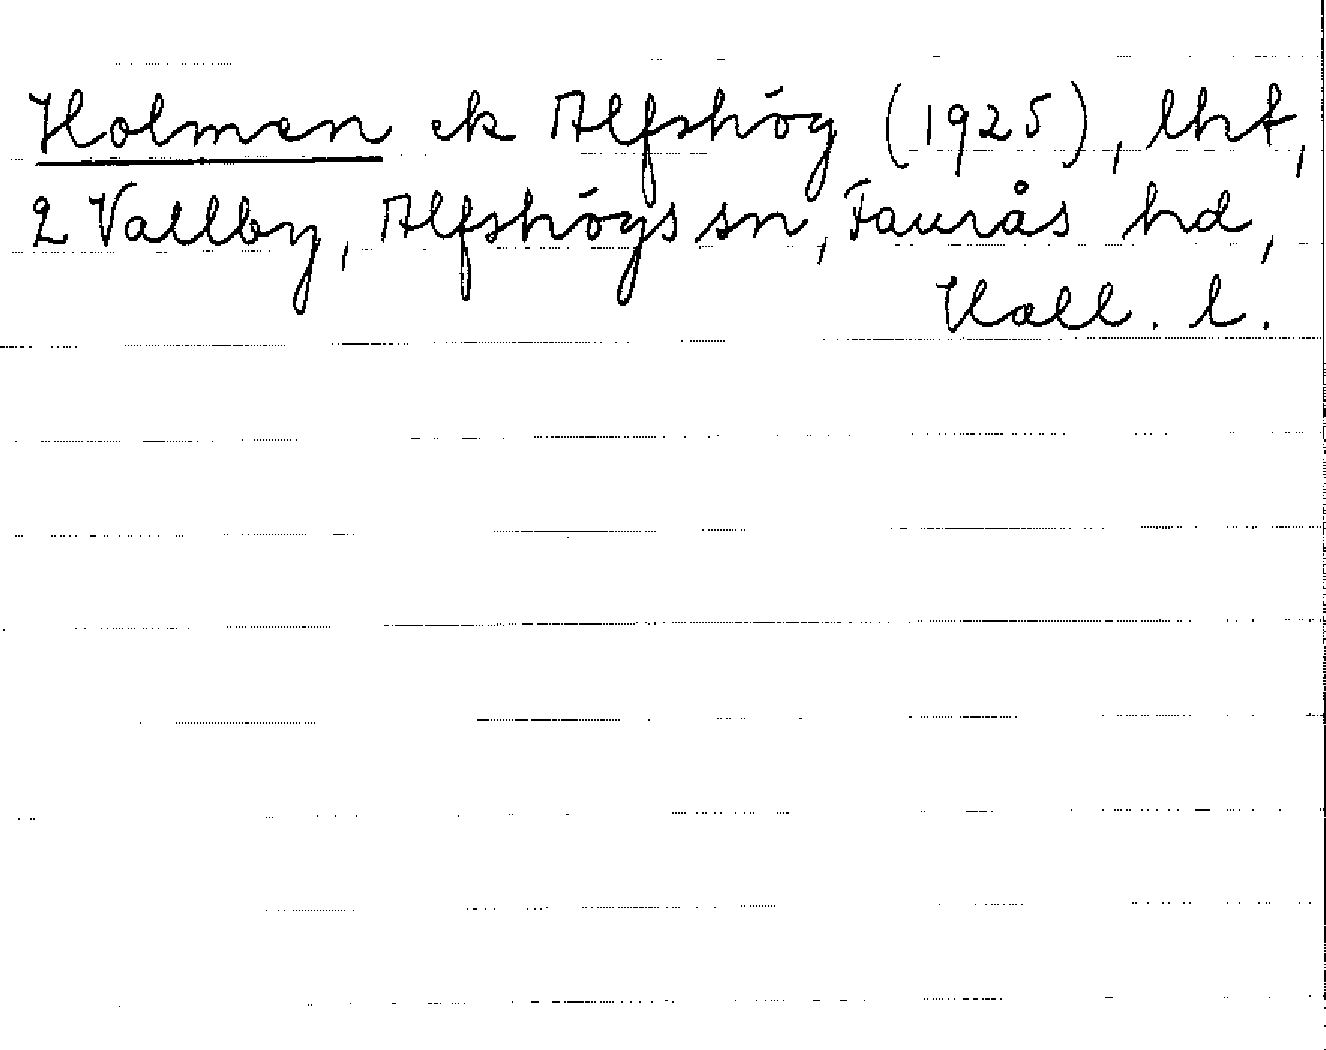 Holmen ek Alfshög (1925), lht,
2 Vallby, Alfshögs sn, Faurås hd,
Hall. l.